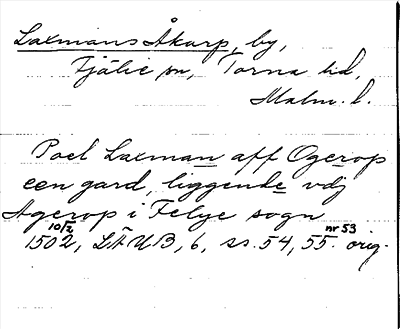 Laxmans Åkarp, by,
Fjälie sn, Torna hd,
Malm. l.
Poel Laxman aff Ogerop
een gard, liggende vdj
Agerop i Felye sogn
10/2 nr 53
1502, LÄUB, 6, ss. 54, 55. orig.